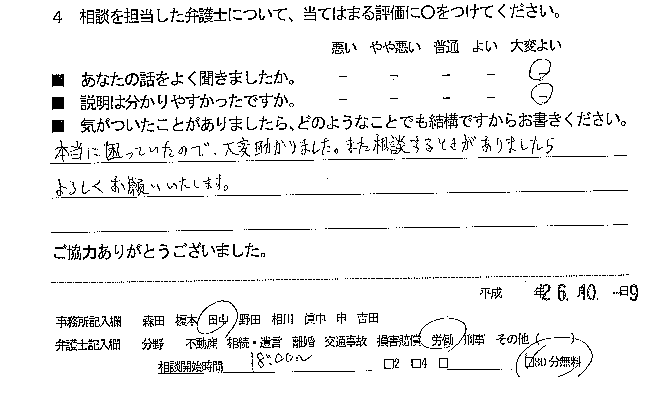 4 相談を担当した弁護士について、当てはまる評価に〇をつけてください。
悪い やや悪い 普通 よい 大変よい
■ あなたの話をよく聞きましたか。 － － － － －
■ 説明は分かりやすかったですか。 － － － － －
■ 気がついたことがありましたら、どのようなことでも結構ですからお書きください。
本当に困っていたので、大変助かりました。また相談するときがありましたら
よろしくお願いいたします。
ご協力ありがとうございました。
平成 年26.10.-日9
事務所記入欄 森田 榎本 田中 野田 相川 眞中 申 吉田
弁護士記入欄 分野 不動産 相続・遺言 離婚 交通事故 損害賠償 労働 刑事 その他 ( )
相談開始時間 18:00〜 □2 □4 □ 30分無料